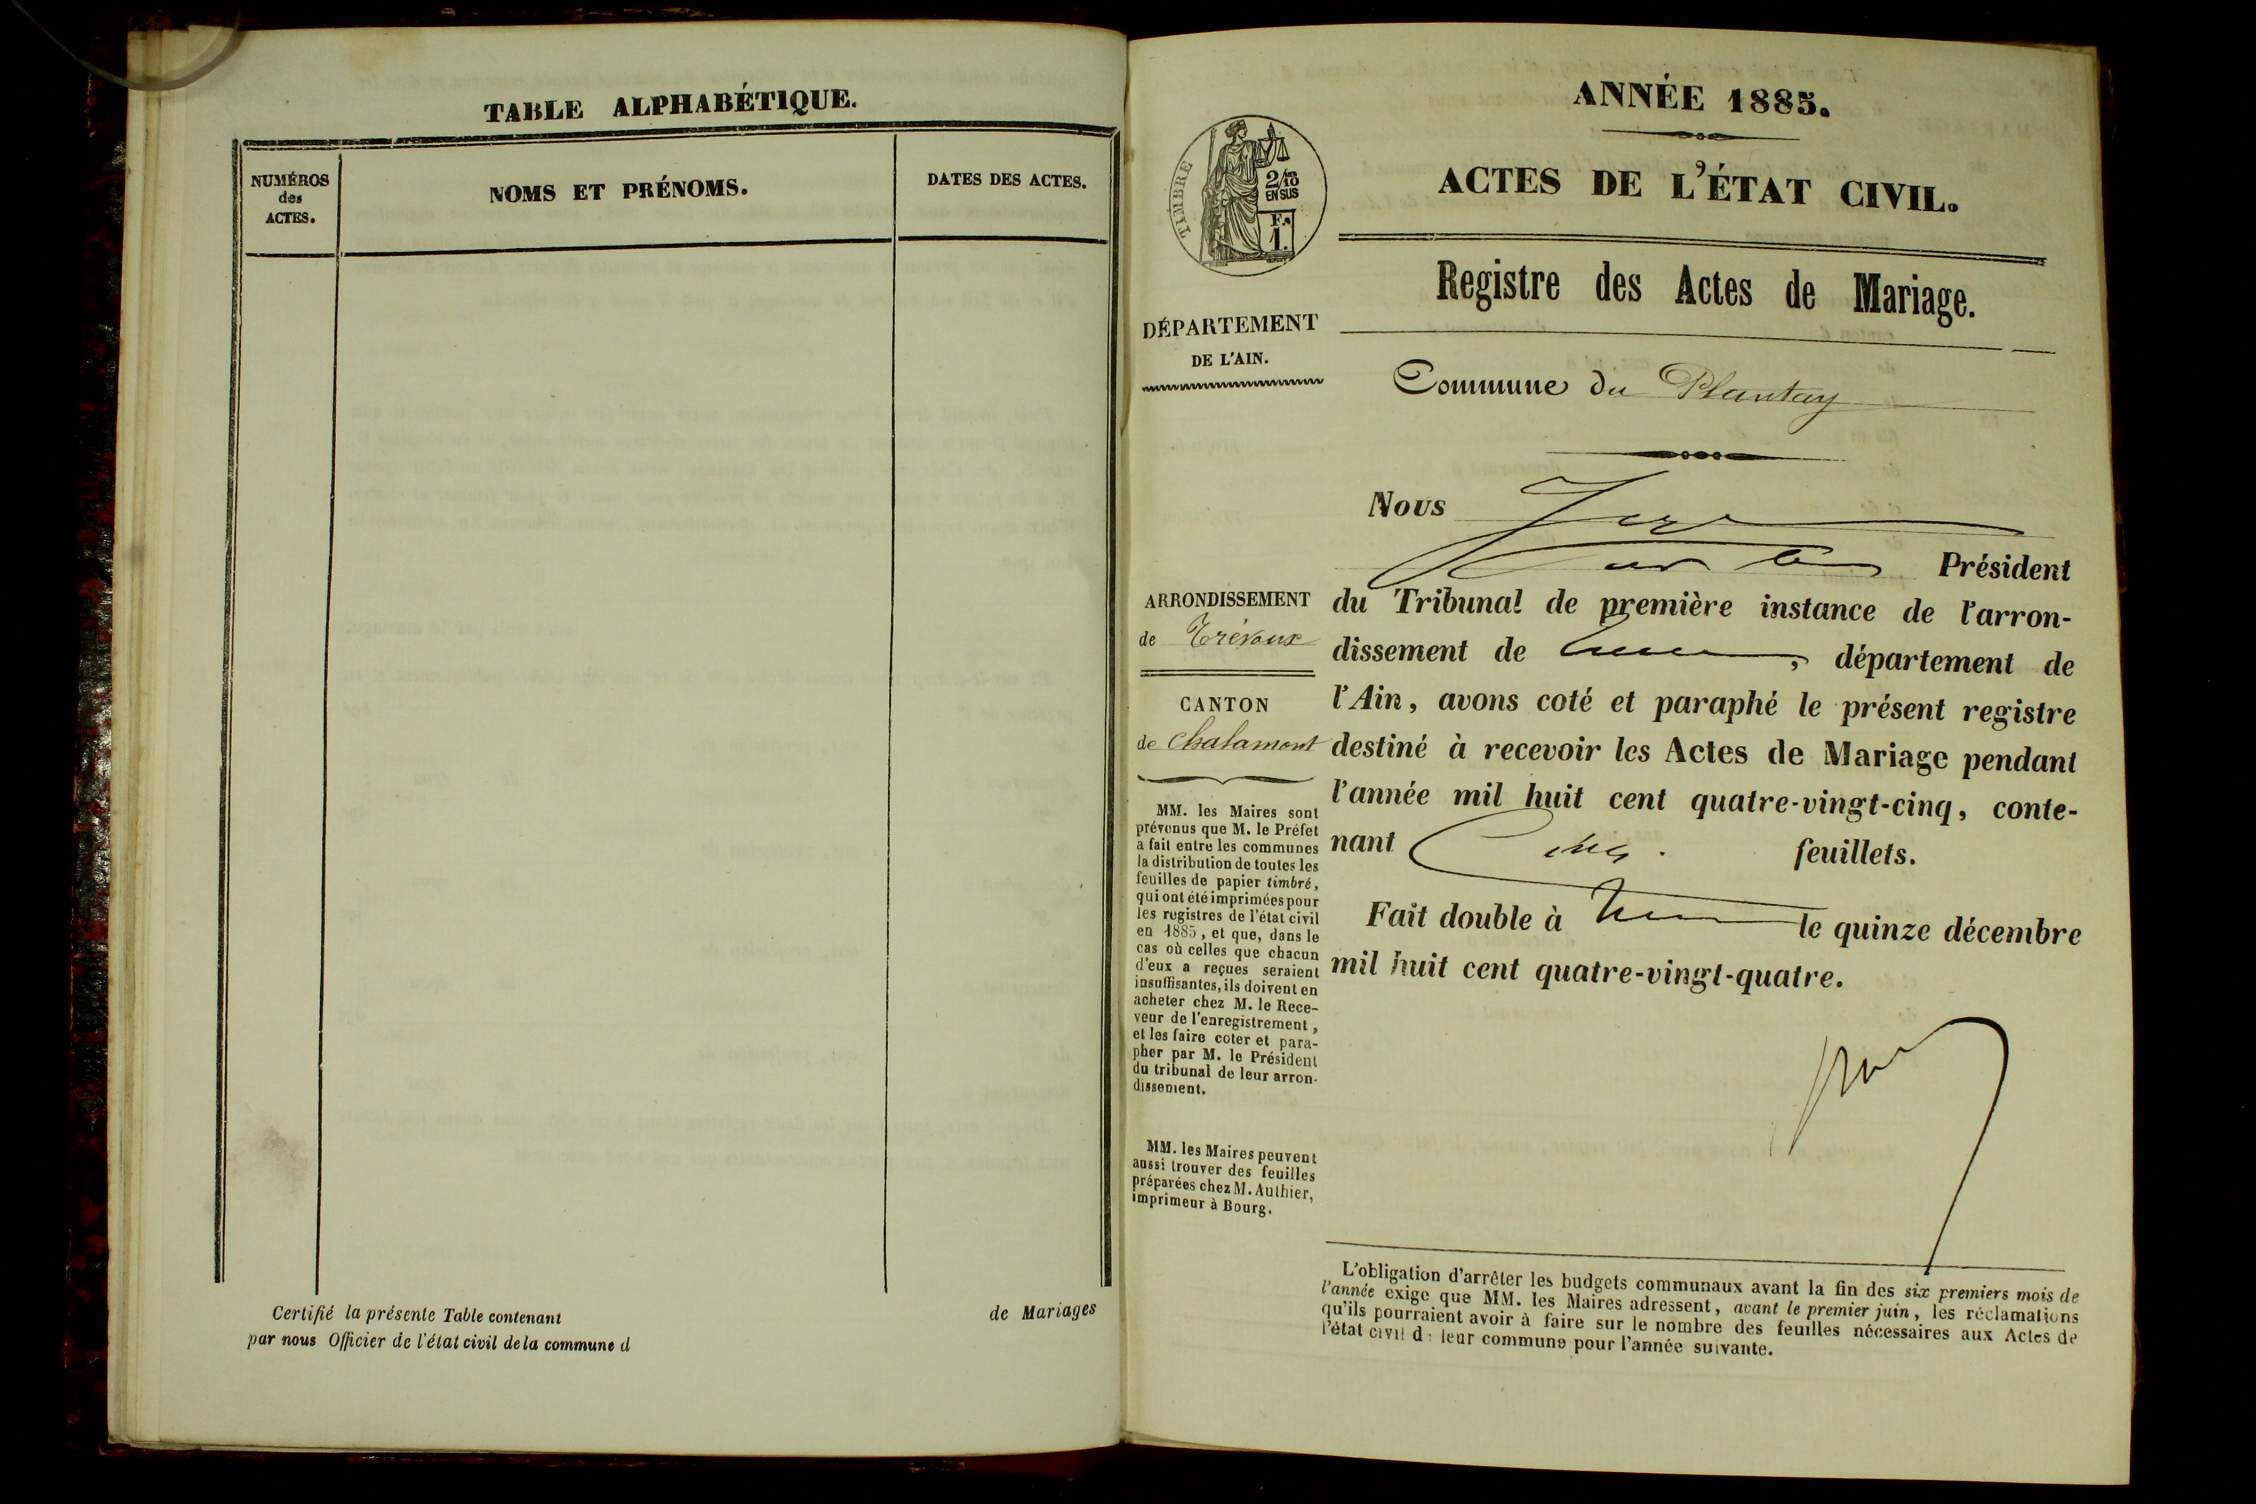 TABLE ALPHABÉTIQUE.
NUMÉROS
des
ACTES.
NOMS ET PRÉNOMS.
DATES DES ACTES.
Certifié la présente Table contenant de Mariages
par nous Officier de l'état civil de la commune d
ANNÉE 1885.
ACTES DE L'ÉTAT CIVIL.
TIMBRE
2/10
EN SUS
1.
Registre des Actes de Mariage.
DÉPARTEMENT
DE L'AIN.
Commune du Plantay
ARRONDISSEMENT
de Trévoux
CANTON
de Chalamont
MM. les Maires sont
prévenus que M. le Préfet
a fait entre les communes
la distribution de toutes les
feuilles de papier timbré,
qui ont été imprimées pour
les registres de l'état civil
en 1885, et que, dans le
cas où celles que chacun
d'eux a reçues seraient
insuffisantes, ils doivent en
acheter chez M. le Rece-
veur de l'enregistrement,
et les faire coter et para-
pher par M. le Président
du tribunal de leur arron-
dissement.
MM. les Maires peuvent
aussi trouver des feuilles
préparées chez M. Authier,
imprimeur à Bourg.
Nous
Président
du Tribunal de première instance de l'arron-
dissement de , département de
l'Ain, avons coté et paraphé le présent registre
destiné à recevoir les Actes de Mariage pendant
l'année mil huit cent quatre-vingt-cinq, conte-
nant Cinq. feuillets.
Fait double à le quinze décembre
mil huit cent quatre-vingt-quatre.
L'obligation d'arrêter les budgets communaux avant la fin des six premiers mois de
l'année exige que MM. les Maires adressent, avant le premier juin, les réclamations
qu'ils pourraient avoir à faire sur le nombre des feuilles nécessaires aux Actes de
l'état civil de leur commune pour l'année suivante.